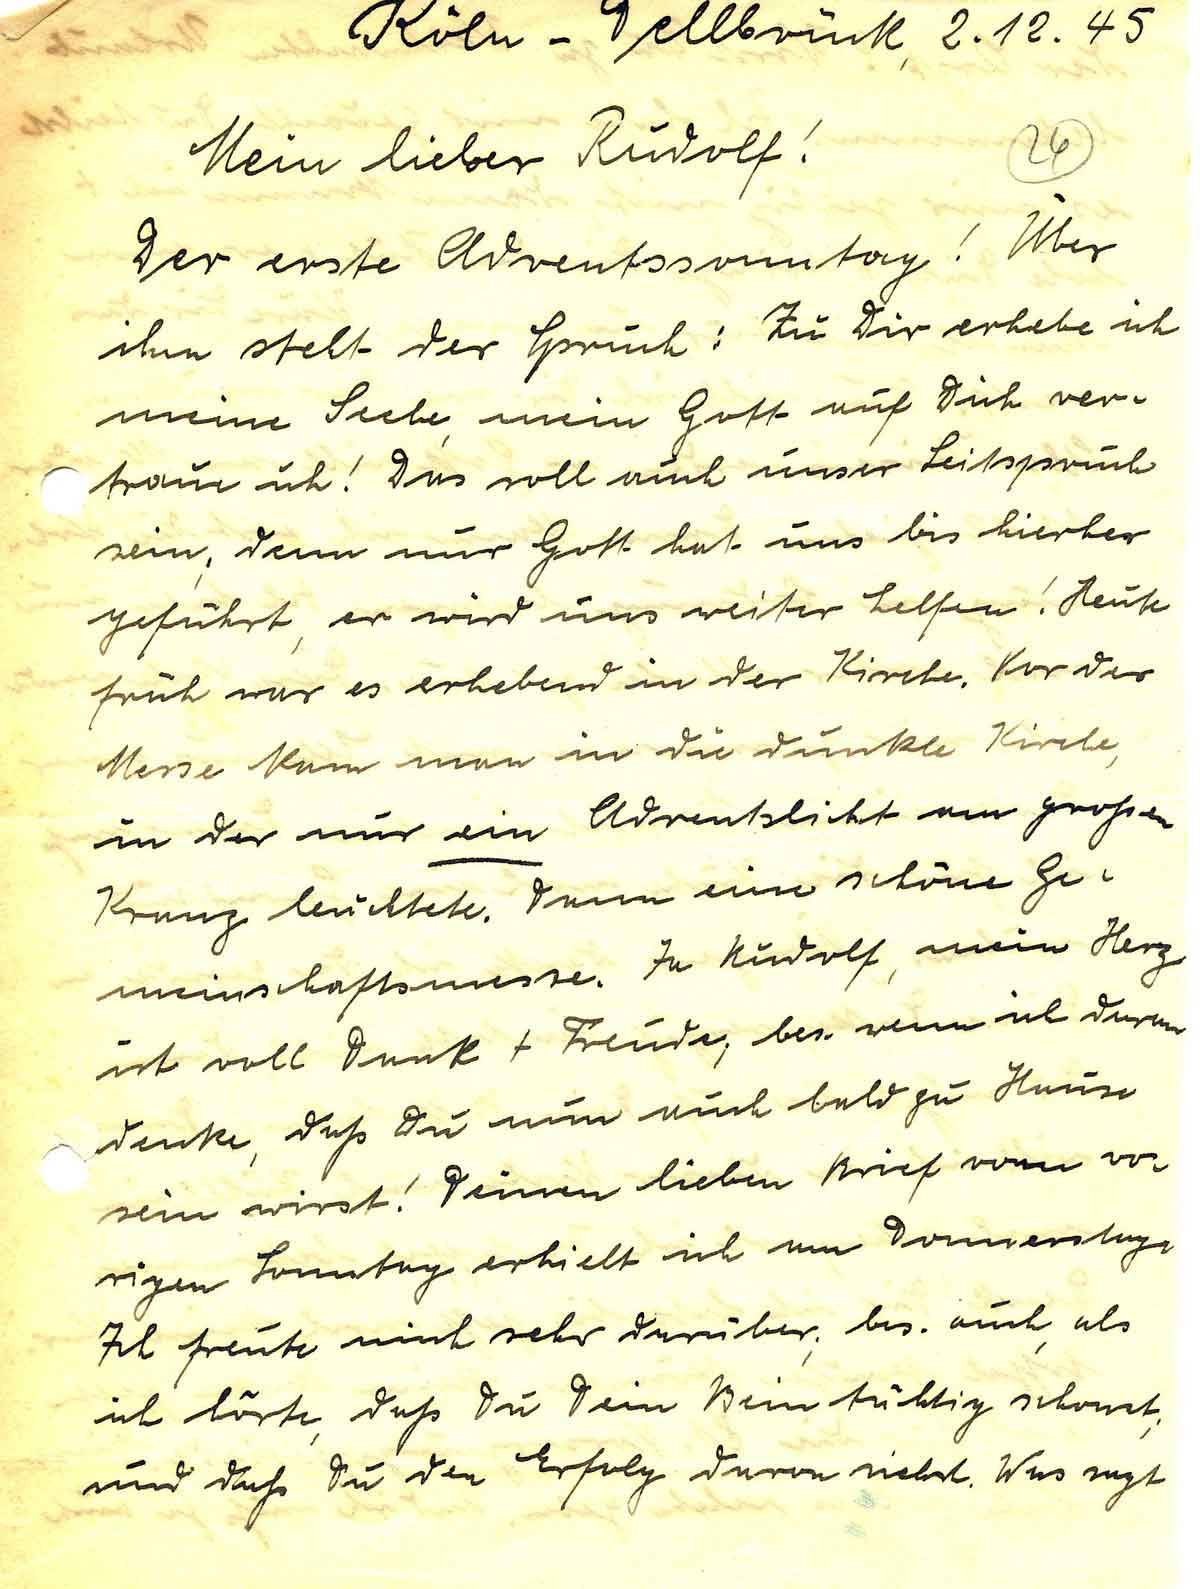 Köln - Dellbrück, 2.12.45
Mein lieber Rudolf!
26
Der erste Adventssonntag! Über
ihm steht der Spruch: Zu Dir erhebe ich
meine Seele, mein Gott auf Dich ver-
traue ich! Das soll auch unser Leitspruch
sein, denn nur Gott hat uns bis hierher
geführt, er wird uns weiter helfen! Heute
früh war es erhebend in der Kirche. Vor der
Messe kam man in die dunkle Kirche,
in der nur ein Adventslicht am großen
Kranz leuchtete. Dann eine schöne Ge-
meinschaftsmesse. Ja Rudolf, mein Herz
ist voll Dank + Freude, bes. wenn ich daran
denke, daß Du nun auch bald zu Hause
sein wirst! Deinen lieben Brief vom vo-
rigen Sonntag erhielt ich am Donnerstag.
Ich freute mich sehr darüber, bes. auch, als
ich hörte, daß Du Dein Bein tüchtig schonst,
und daß Du den Erfolg davon siehst. Was sagt